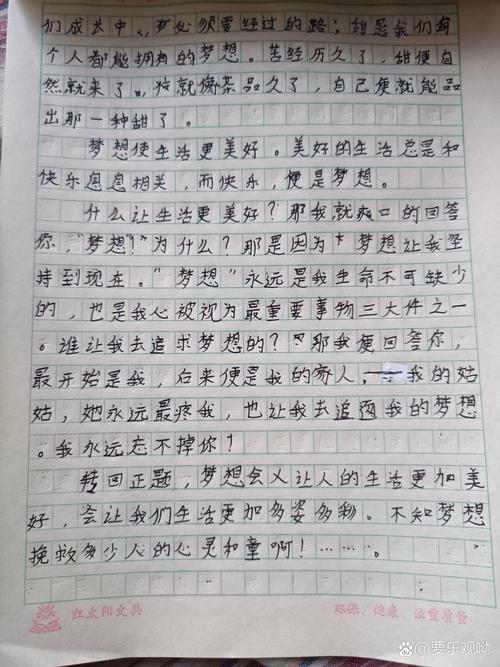 们成长中,必须要经过的路；甜是我们每
个人都能拥有的梦想。苦经历久了，甜便自
然就来了。就像茶品久了，自己便就能品
出那一种甜了。
梦想使生活更美好。美好的生活总是和
快乐息息相关，而快乐，便是梦想。
什么让生活更美好？那我就爽口的回答
你，“梦想”！为什么？那是因为“梦想让我坚
持到现在。”梦想”永远是我生命不可缺少
的，也是我心被视为最重要事物三大件之一
。谁让我去追求梦想的？那我便回答你，
最开始是我，后来便是我的家人，我的姑
姑，她永远最疼我，也让我去追逐我的梦想
。我永远忘不掉你！
转回正题，梦想会让人的生活更加美
好，会让我们生活更加多姿多彩。不知梦想
挽救多少人的心灵和童啊！……。
红太阳文具
环保、健康、注重质量
百家号@要乐观呦